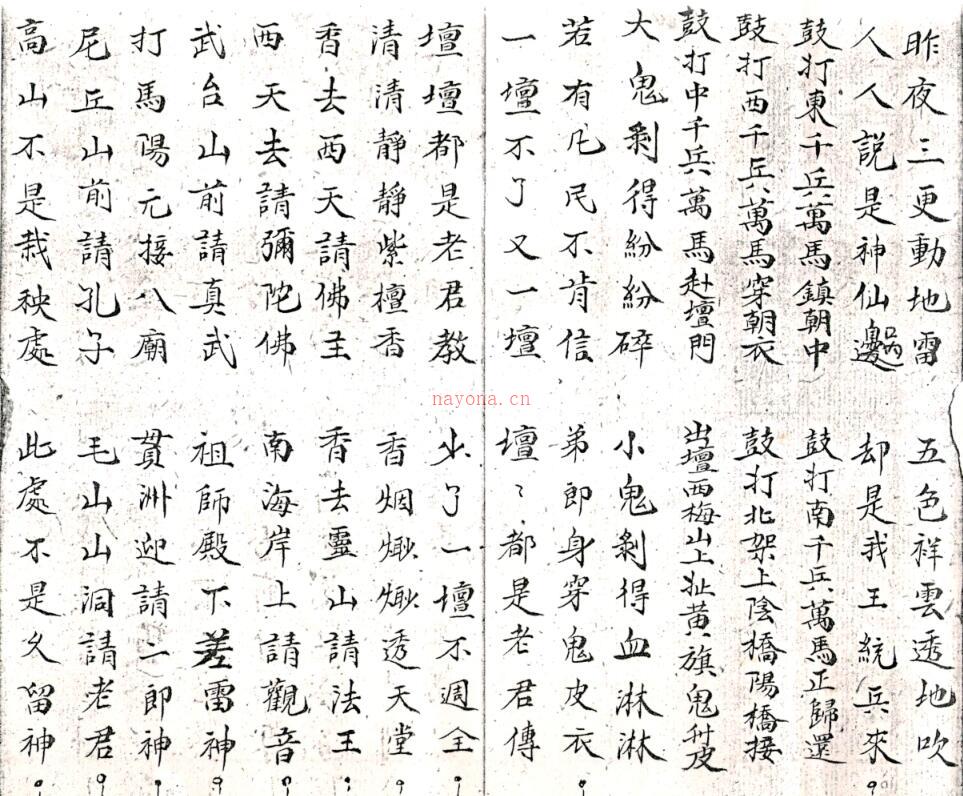 昨夜三更動地雷　五色祥雲透地吹
人人説是神仙邊過　却是我王統兵來
鼓打東千兵萬馬鎮朝中　鼓打南千兵萬馬正歸還
鼓打西千兵萬馬穿朝衣　鼓打北架上陰橋陽橋接
鼓打中千兵萬馬赴壇門　出壇西梅山上扯黄旗鬼升皮
大鬼剩得紛紛碎　小鬼剝得血淋淋
若有凡民不肯信　弟郎身穿鬼皮衣
一壇不了又一壇　壇〻都是老君傳
壇壇都是老君教　少了一壇不週全
清清靜靜紫檀香　香烟𤋮𤋮透天堂
香去西天請佛主　香去靈山請法王
西天去請彌陀佛　南海岸上請觀音
武台山前請真武　祖師殿下差雷神
打馬陽元接八廟　貫洲迎請二郎神
尼丘山前請孔子　毛山山洞請老君
高山不是栽秧處　此處不是久留神
nayona.cn